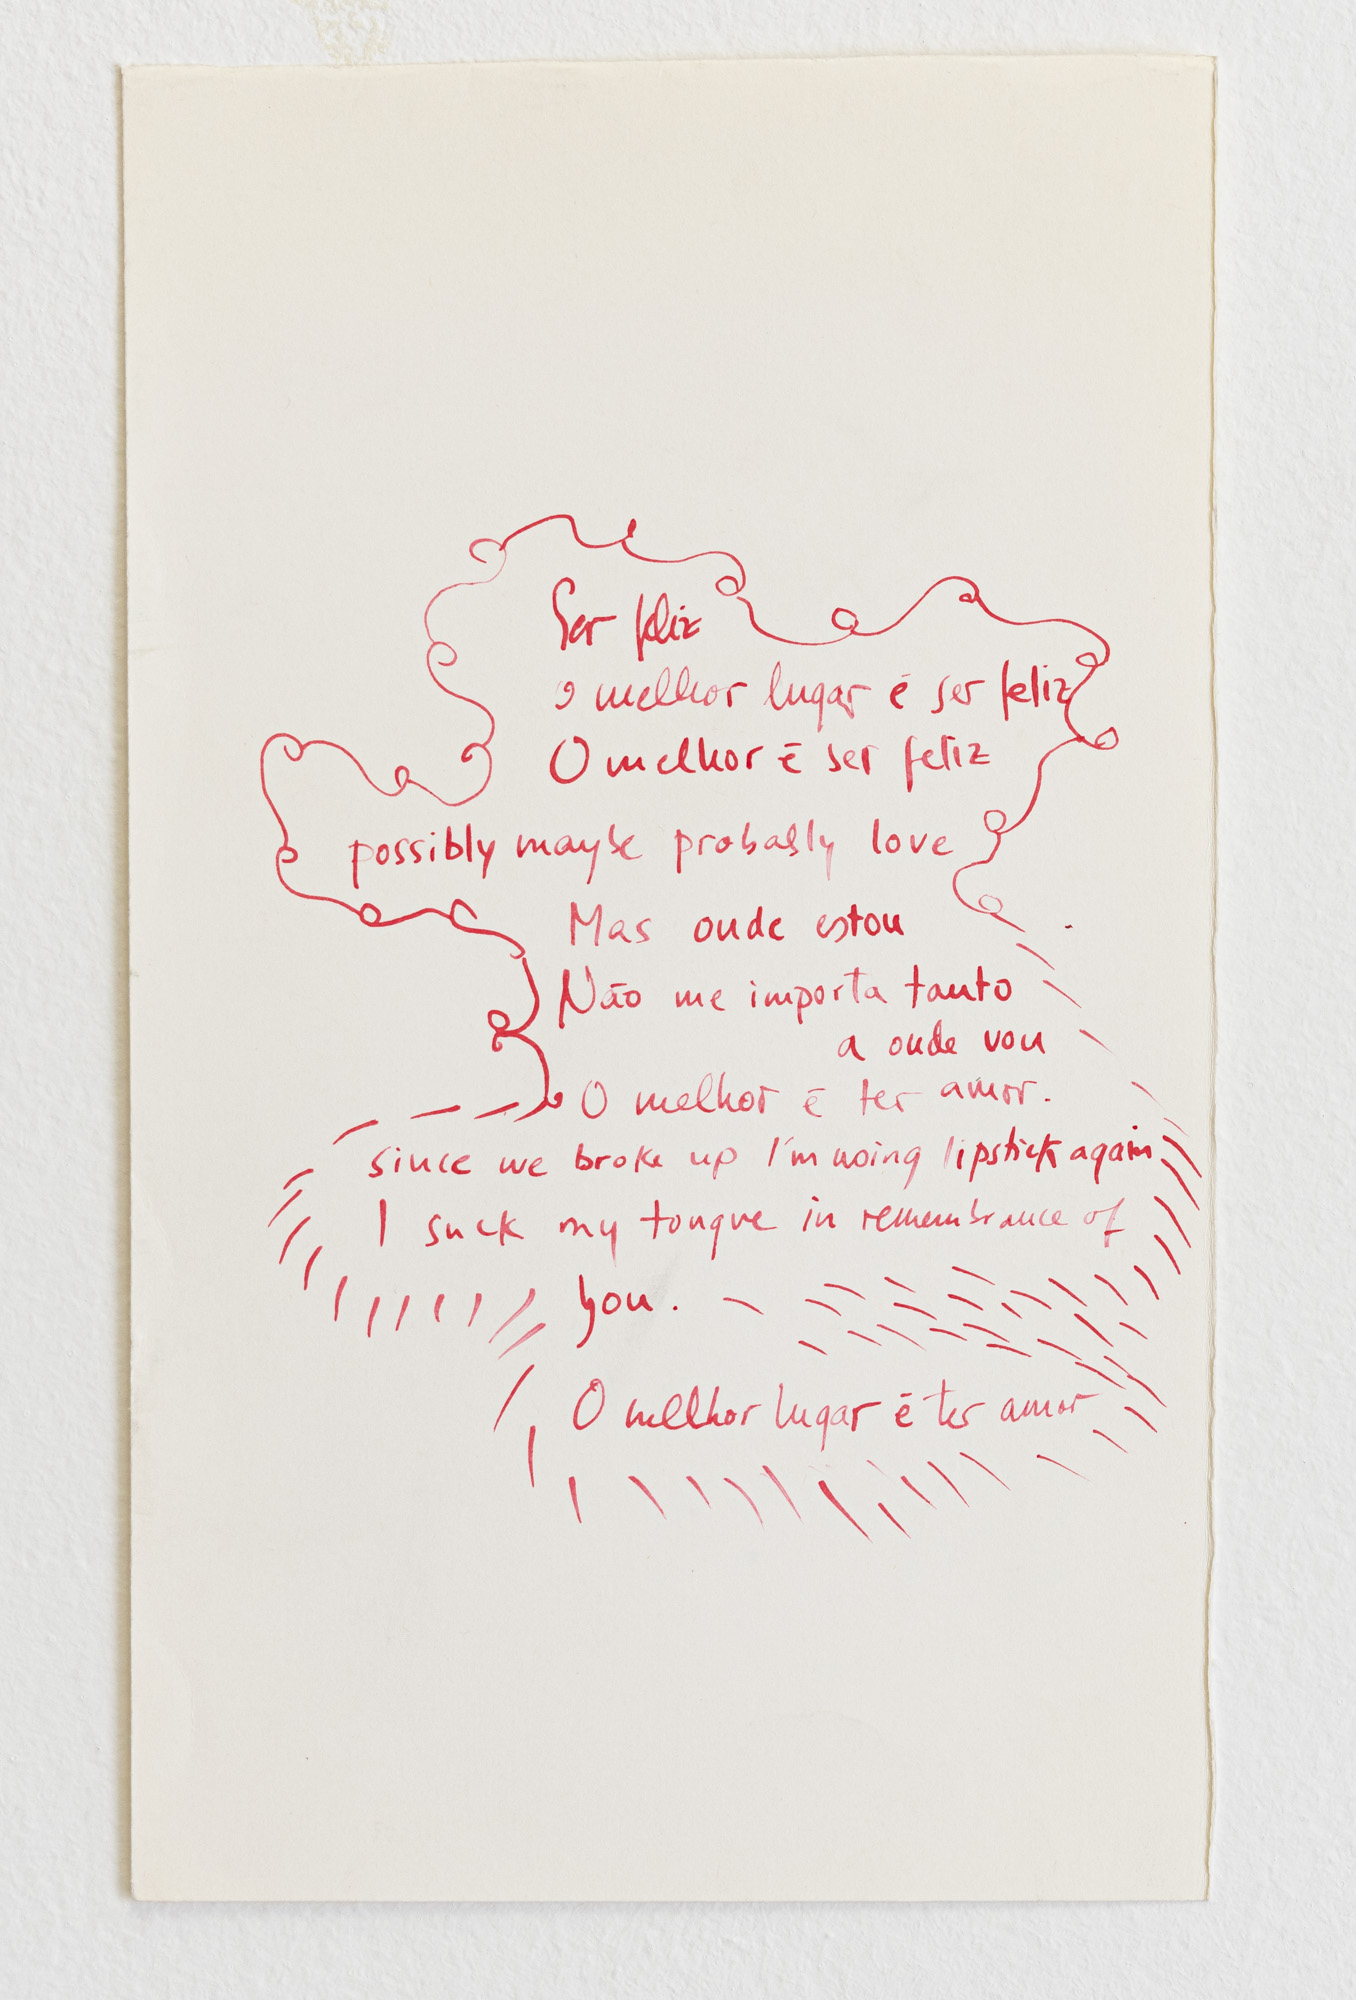 Ser feliz
o melhor lugar é ser feliz
O melhor é ser feliz
possibly maybe probably love
Mas onde estou
Não me importa tanto
a onde vou
O melhor é ter amor.
since we broke up I'm using lipstick again
I suck my tongue in remembrance of
you.
O melhor lugar é ter amor